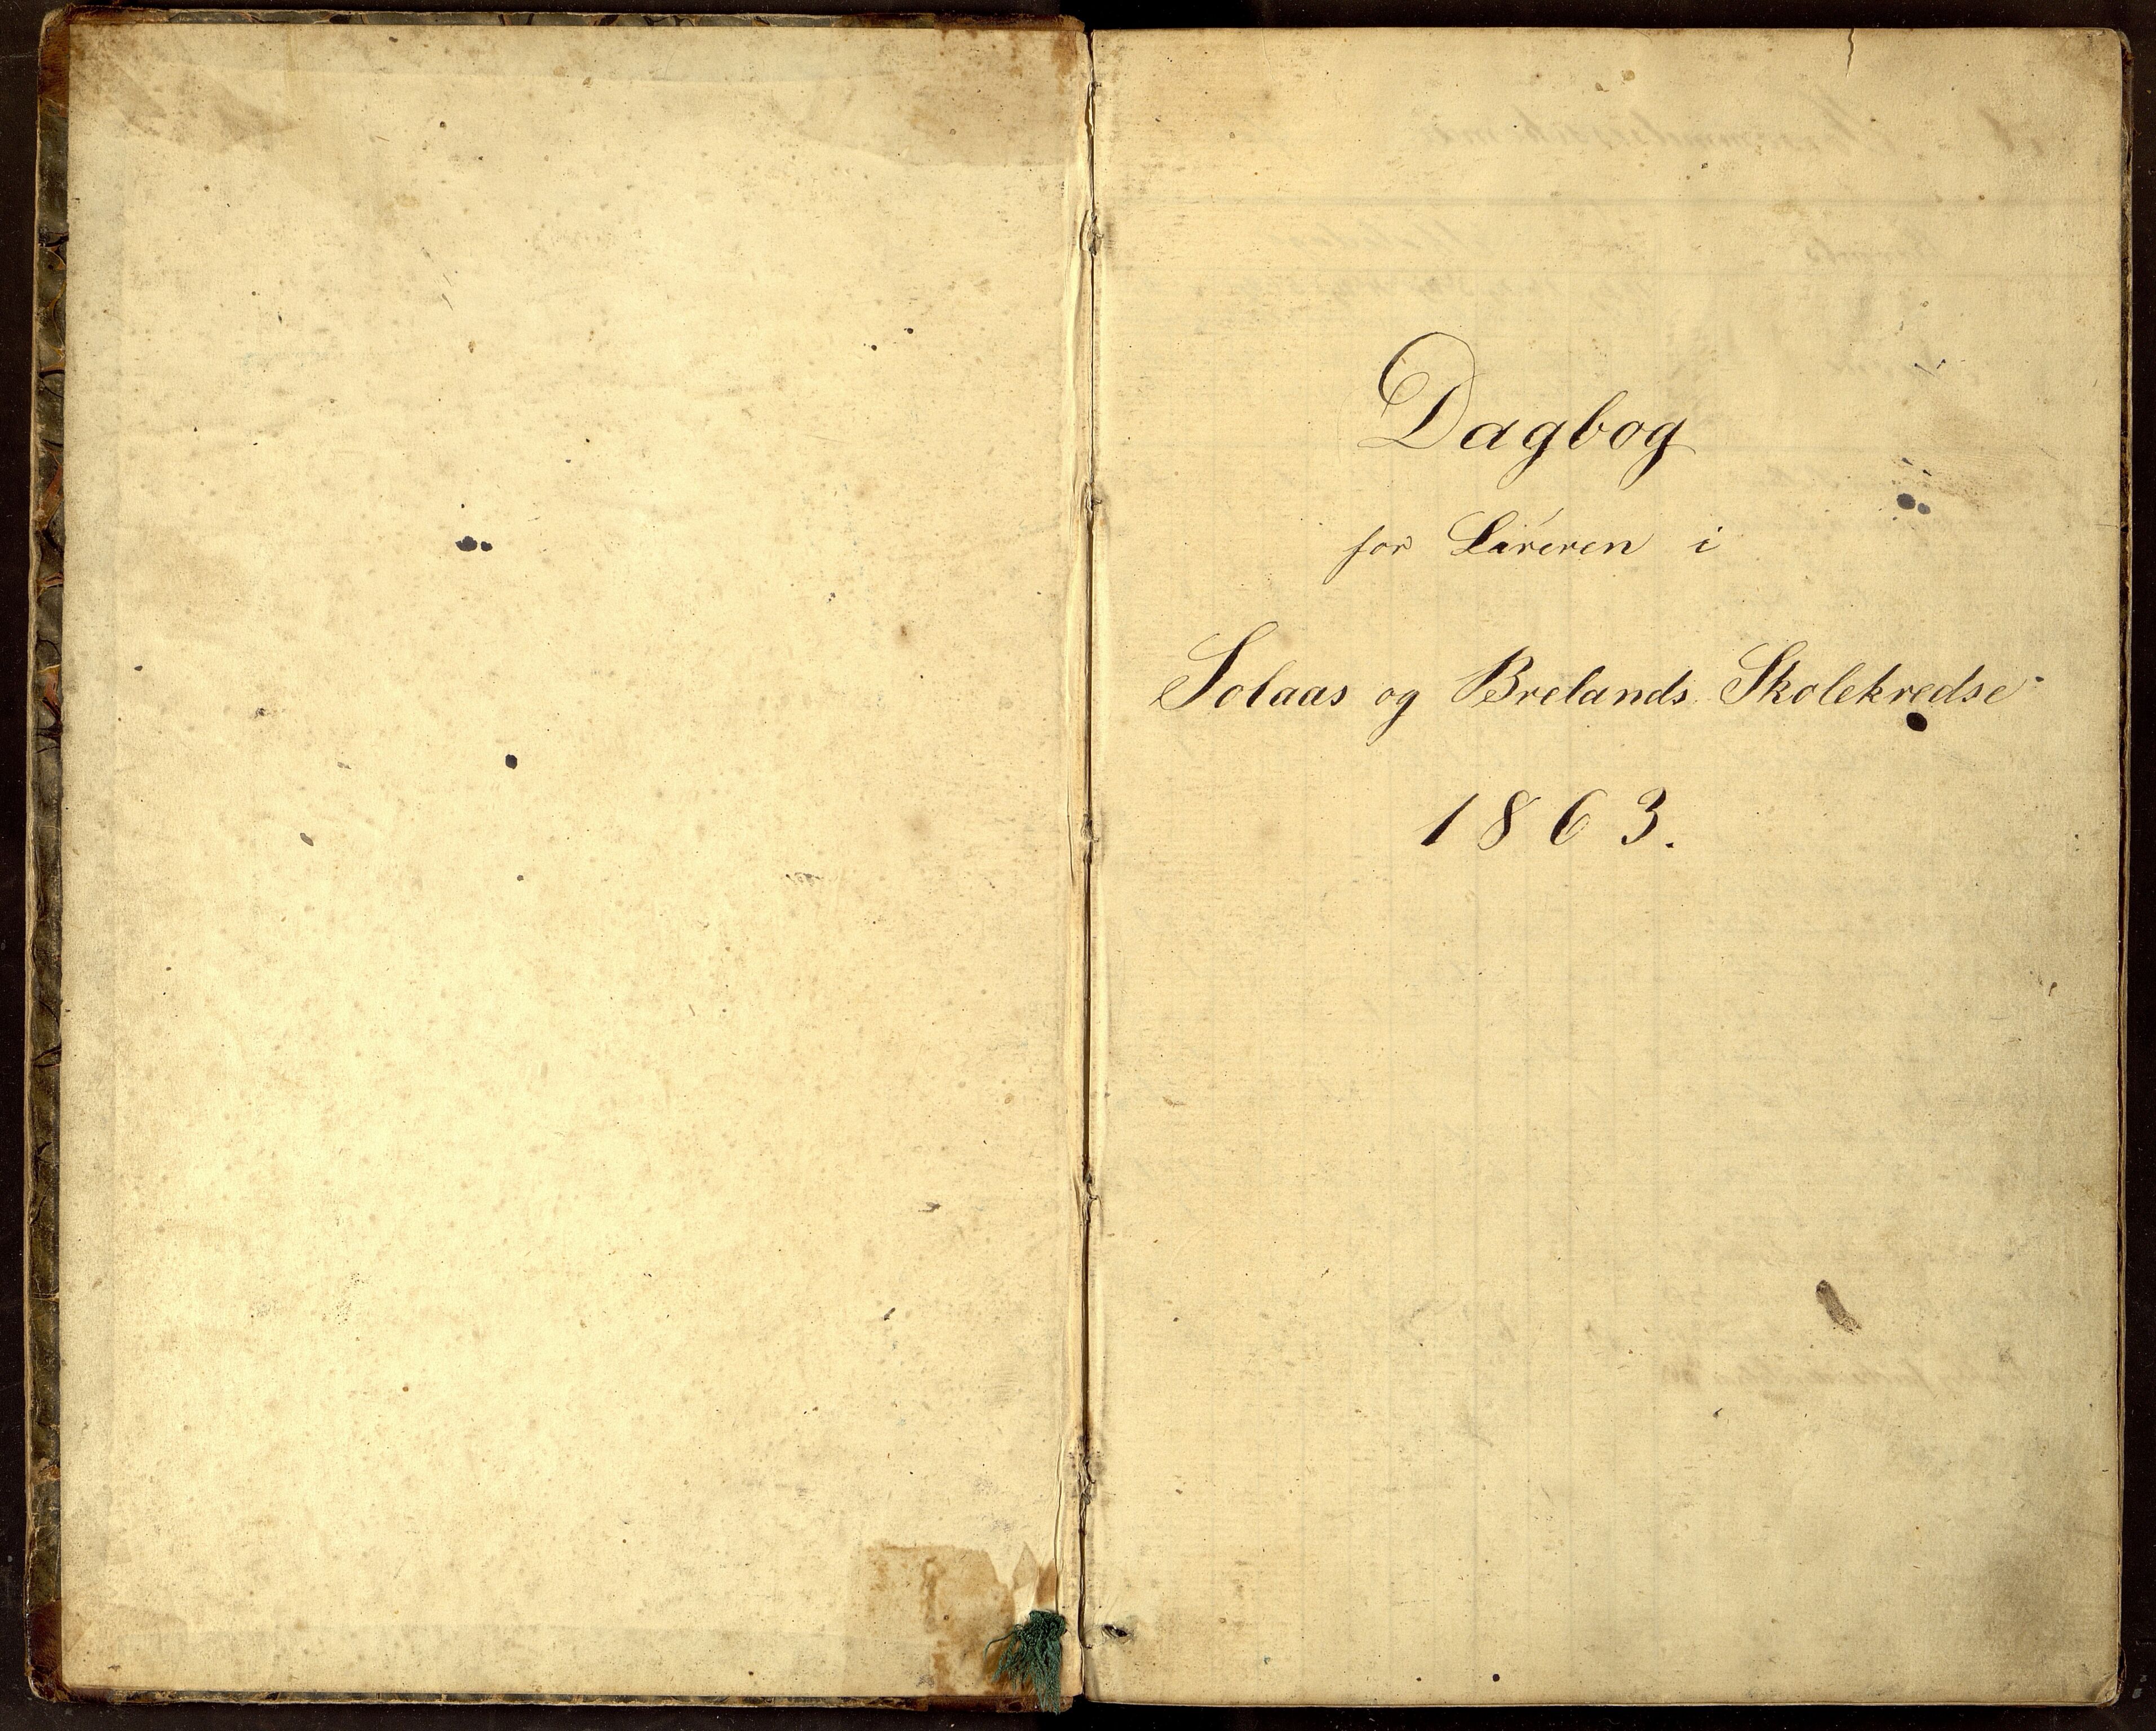 Dagbog
for Läreren i
Solaas og Brelands Skolekredse
1863.